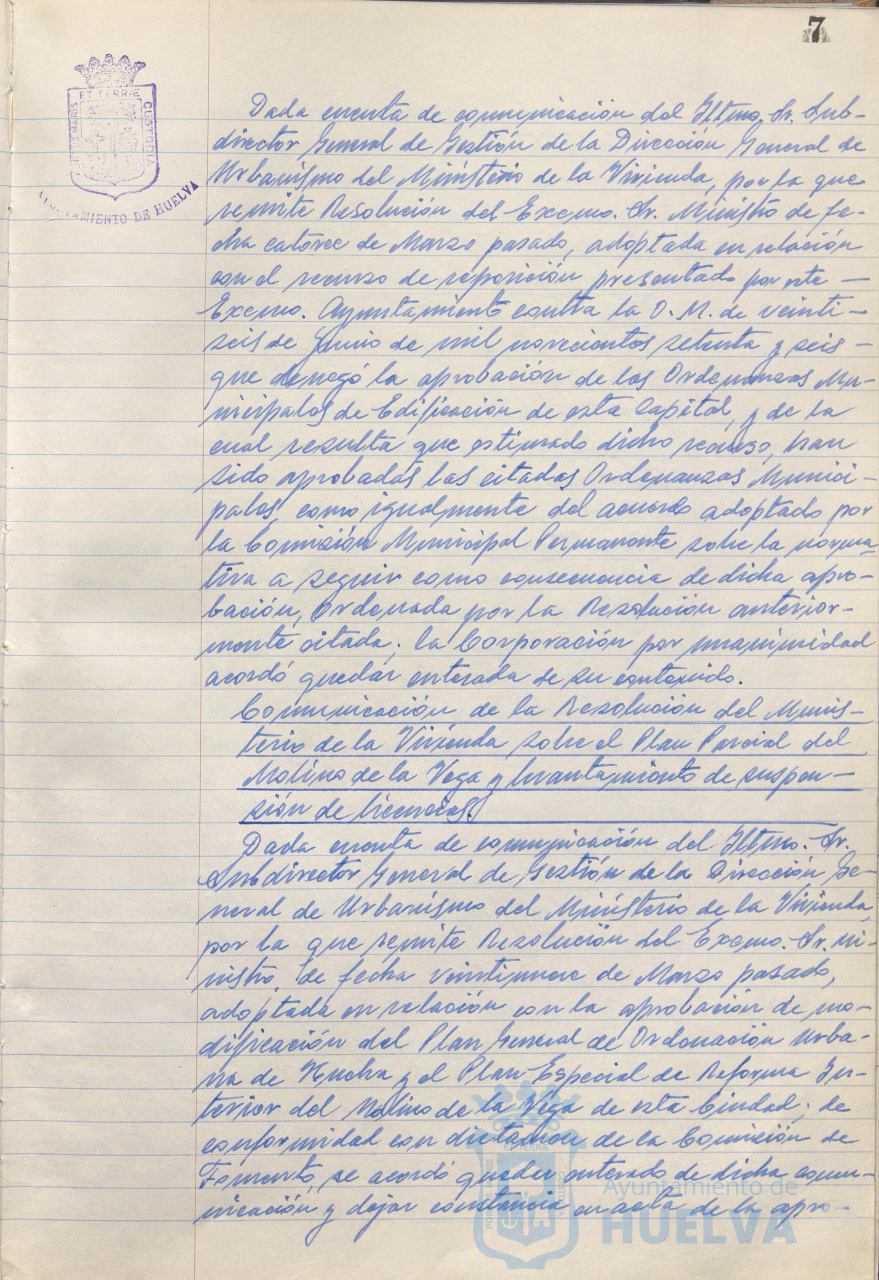 7
ET TERRÆ
CUSTODIA
AYUNTAMIENTO DE HUELVA
Dada cuenta de comunicación del Iltmo. Sr. Sub-
director General de Gestión de la Dirección General de
Urbanismo del Ministerio de la Vivienda, por la que
remite Resolución del Excmo. Sr. Ministro de fe-
cha catorce de Marzo pasado, adoptada en relación
con el recurso de reposición presentado por este —
Excmo. Ayuntamiento contra la O. M. de veinti-
seis de Junio de mil novecientos setenta y seis -
que denegó la aprobación de las Ordenanzas Mu-
nicipales de Edificación de esta Capital, y de la
cual resulta que estimado dicho recurso, han
sido aprobadas las citadas Ordenanzas Munici-
pales, como igualmente del acuerdo adoptado por
la Comisión Municipal Permanente sobre la norma-
tiva a seguir como consecuencia de dicha apro-
bación, ordenada por la Resolución anterior-
mente citada; la Corporación por unanimidad
acordó quedar enterada de su contenido.
Comunicación de la Resolución del Minis-
terio de la Vivienda sobre el Plan Parcial del
Molino de la Vega y levantamiento de suspen-
sión de licencias.
Dada cuenta de comunicación del Iltmo. Sr.
Subdirector General de Gestión de la Dirección Ge-
neral de Urbanismo del Ministerio de la Vivienda,
por la que remite Resolución del Excmo. Sr. Mi-
nistro, de fecha veintinueve de Marzo pasado,
adoptada en relación con la aprobación de mo-
dificación del Plan General de Ordenación Urba-
na de Huelva y el Plan Especial de Reforma In-
terior del Molino de la Vega de esta Ciudad; de
conformidad con dictamen de la Comisión de
Fomento, se acordó quedar enterado de dicha comu-
nicación y dejar constancia en acta de la apro-
Ayuntamiento de
HUELVA